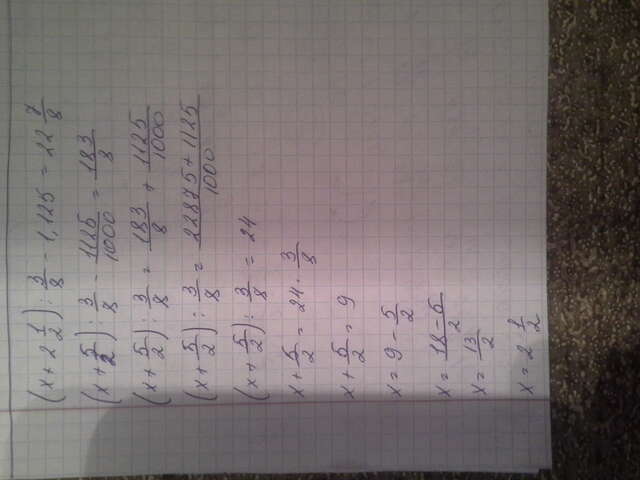 (x + 2 1/2) : 3/8 - 1,125 = 22 7/8
(x + 5/2) : 3/8 - 1125/1000 = 183/8
(x + 5/2) : 3/8 = 183/8 + 1125/1000
(x + 5/2) : 3/8 = (22875 + 1125)/1000
(x + 5/2) : 3/8 = 24
x + 5/2 = 24 · 3/8
x + 5/2 = 9
x = 9 - 5/2
x = (18 - 5)/2
x = 13/2
x = 2 1/2